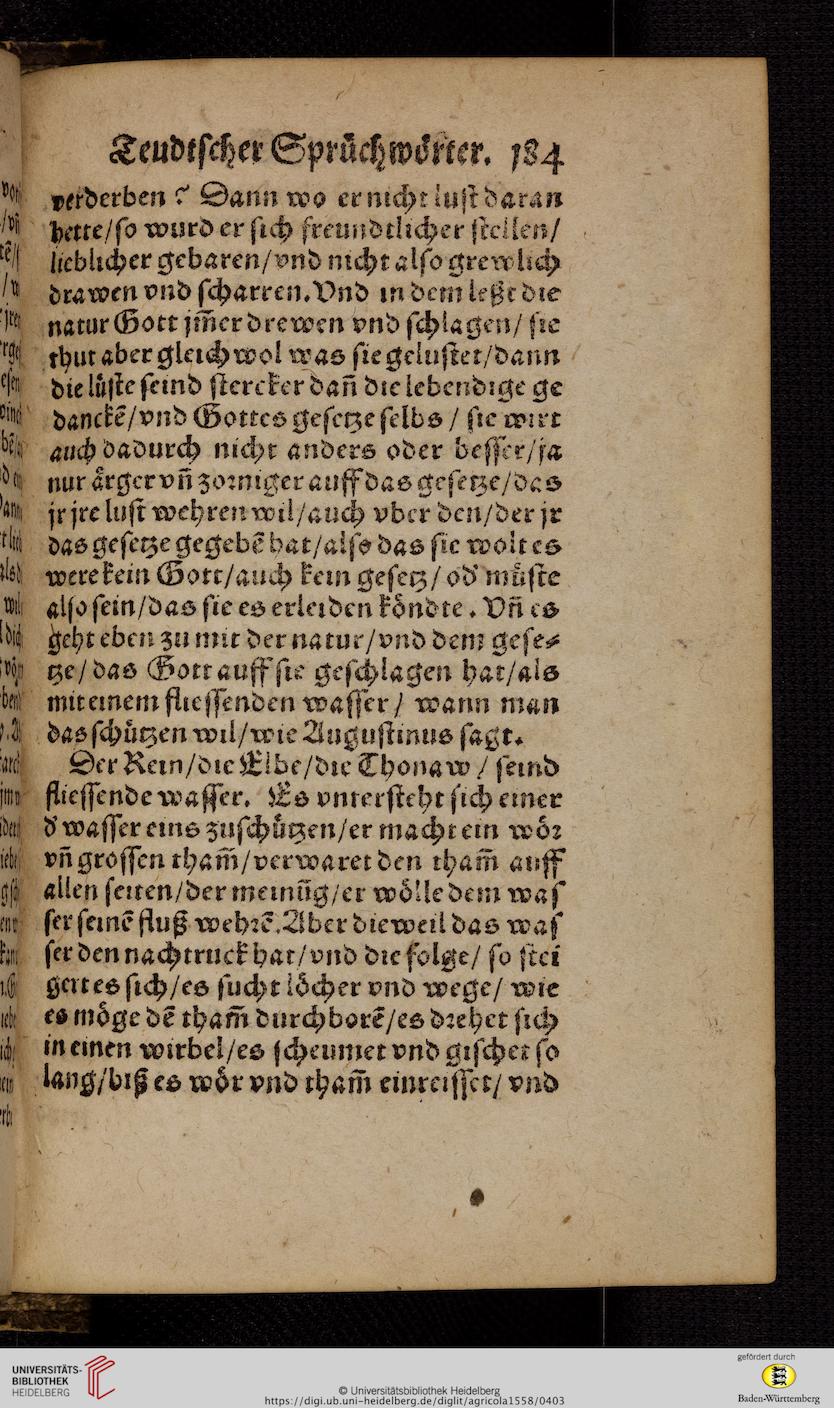 Teudtscher Sprůchwoͤrter. 184
verderben? Dann wo er nicht lust daran
hette/so wurd er sich freundtlicher stellen/
lieblicher gebaren/vnd nicht also grewlich
drawen vnd scharren. Vnd in dem leßt die
natur Gott jm̃er drewen vnd schlagen/ sie
thut aber gleichwol was sie gelustet/dann
die lůste seind stercker dañ die lebendige ge
danckẽ/vnd Gottes gesetze selbs / sie wirt
auch dadurch nicht anders oder besser/ja
nur aͤrger vñ zorniger auff das gesetze/das
jr jre lust wehren wil/auch vber den/der jr
das gesetze gegebẽ hat/also das sie wolt es
were kein Gott/auch kein gesetz/ od' můste
also sein/das sie es erleiden koͤndte. Vñ es
geht eben zu mit der natur/vnd dem gese⸗
tze/ das Gott auff sie geschlagen hat/als
mit einem fliessenden wasser/ wann man
das schůtzen wil/wie Augustinus sagt.
Der Rein/die Elbe/die Thonaw/ seind
fliessende wasser. Es vntersteht sich einer
d' wasser eins zuschůtzen/er macht ein woͤr
vñ grossen tham̃/verwaret den tham̃ auff
allen seiten/der meinũg/er woͤlle dem was
ser seinẽ fluß wehrẽ. Aber dieweil das was
ser den nachtruck hat/vnd die folge/ so stei
gert es sich/es sucht loͤcher vnd wege/ wie
es moͤge dẽ tham̃ durchborẽ/es drehet sich
in einen wirbel/es scheumet vnd gischet so
lang/biß es woͤr vnd tham̃ einreisset/ vnd
UNIVERSITÄTS-
BIBLIOTHEK
HEIDELBERG
© Universitätsbibliothek Heidelberg
https://digi.ub.uni-heidelberg.de/diglit/agricola1558/0403
gefördert durch
Baden-Württemberg